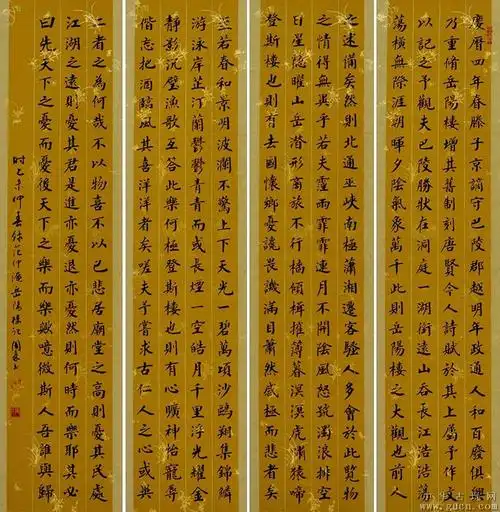 慶曆四年春滕子京謫守巴陵郡越明年政通人和百廢俱興
乃重修岳陽樓增其舊制刻唐賢今人詩賦於其上屬予作文
以記之予觀夫巴陵勝狀在洞庭一湖銜遠山吞長江浩浩蕩
蕩橫無際涯朝暉夕陰氣象萬千此則岳陽樓之大觀也前人
之述備矣然則北通巫峽南極瀟湘遷客騷人多會於此覽物
之情得無異乎若夫霪雨霏霏連月不開陰風怒號濁浪排空
日星隱曜山岳潛形商旅不行檣傾楫摧薄暮冥冥虎嘯猿啼
登斯樓也則有去國懷鄉憂讒畏譏滿目蕭然感極而悲者矣
至若春和景明波瀾不驚上下天光一碧萬頃沙鷗翔集錦鱗
游泳岸芷汀蘭鬱鬱青青而或長煙一空皓月千里浮光耀金
靜影沉璧漁歌互答此樂何極登斯樓也則有心曠神怡寵辱
偕忘把酒臨風其喜洋洋者矣嗟夫予嘗求古仁人之心或異
二者之為何哉不以物喜不以己悲居廟堂之高則憂其民處
江湖之遠則憂其君是進亦憂退亦憂然則何時而樂耶其必
曰先天下之憂而憂後天下之樂而樂歟噫微斯人吾誰與歸
時乙未仲春錄范仲淹岳陽樓記